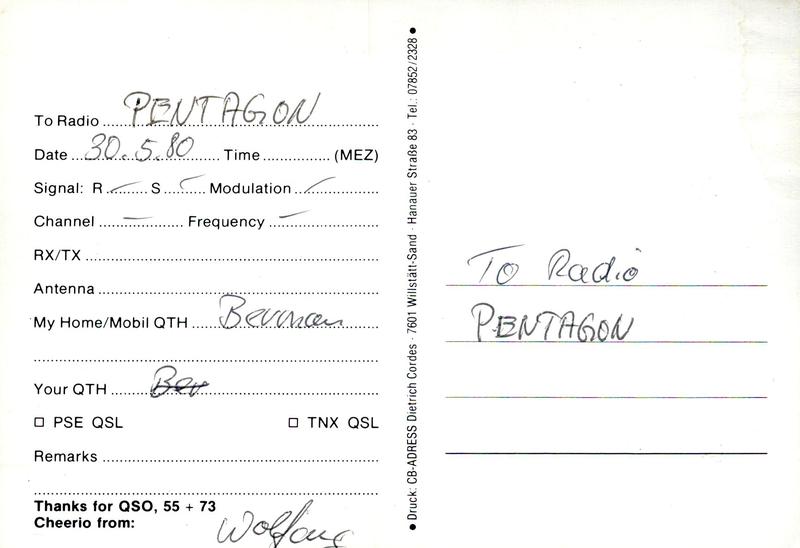 To Radio PENTAGON
Date 30.5.80 Time (MEZ)
Signal: R S Modulation
Channel — Frequency —
RX/TX
Antenna
My Home/Mobil QTH
Your QTH
□ PSE QSL □ TNX QSL
Remarks
Thanks for QSO, 55 + 73
Cheerio from: Wolfgang
● Druck: CB-ADRESS Dietrich Cordes · 7601 Willstätt-Sand · Hanauer Straße 83 · Tel.: 07852/2328 ●
To Radio
PENTAGON